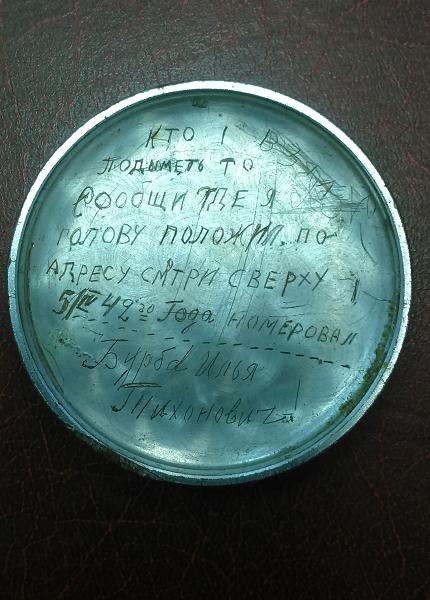 КТО І ВЗЯЛ
ПОДЫМЕТЬ ТО
СООБЩИ ГДЕ Я
ГОЛОВУ ПОЛОЖИЛ. ПО
АДРЕСУ СМТРИ СВЕРХУ
5/IV 42го Года НОМЕРОВАЛ
Бурба Илья
Тихонович